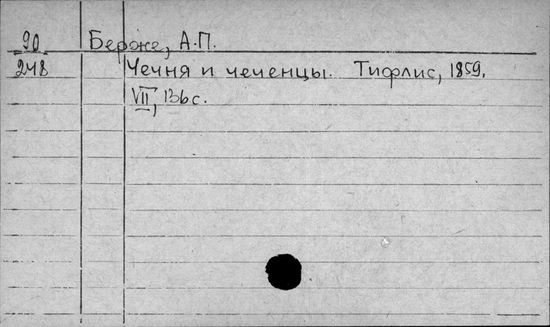 90 Берже, А.П.
248 Чечня и чеченцы. Тифлис, 1859.
VII, 136 с.